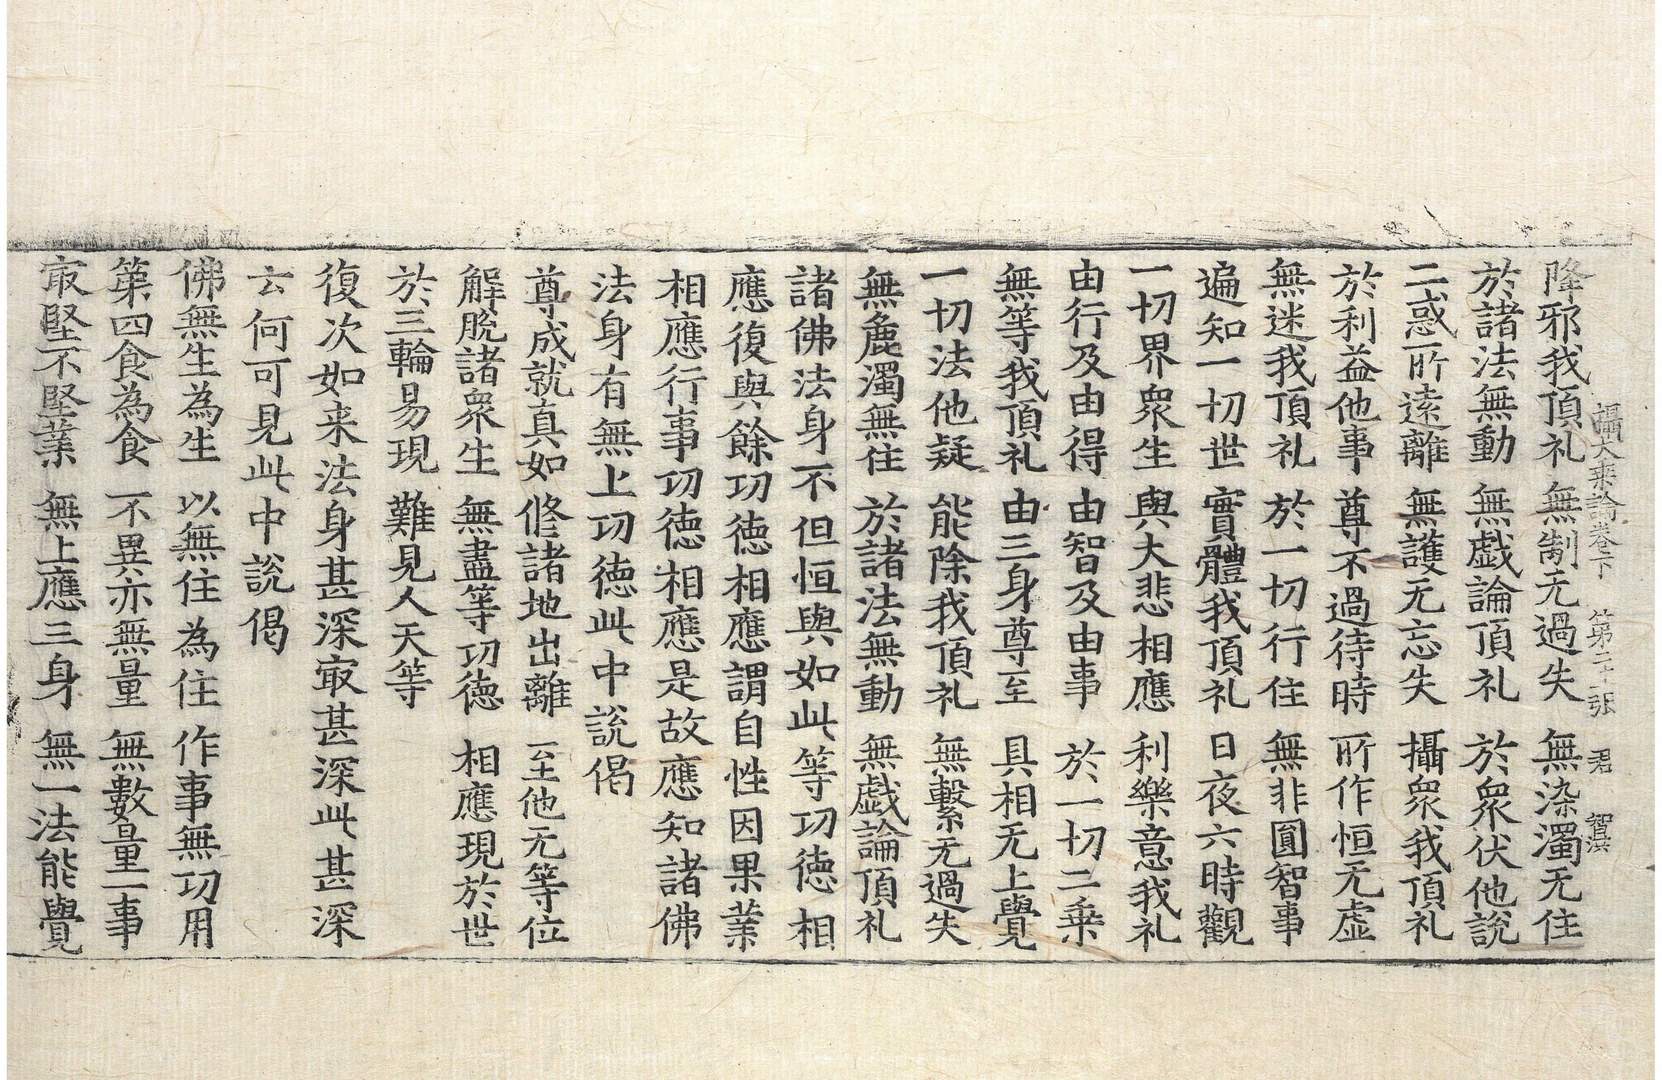 攝大乗論卷下 第二十 張 君
降邪我頂礼 無制无過失 無染濁无住
於諸法無動 無戯論頂礼 於衆伏他說
二惑所遠離 無護无忘失 攝衆我頂礼
於利益他事 尊不過待時 所作恒无虛
無迷我頂礼 於一切行住 無非圓智事
遍知一切世 實體我頂礼 日夜六時觀
一切界衆生 與大悲相應 利樂意我礼
由行及由得 由智及由事 於一切二乗
無等我頂礼 由三身尊至 具相无上覺
一切法他疑 能除我頂礼 無繫无過失
無麁濁無住 於諸法無動 無戯論頂礼
諸佛法身不但恒與如此等功徳相
應復與餘功徳相應謂自性因果業
相應行事功徳相應是故應知諸佛
法身有無上功徳此中說偈
尊成就真如 修諸地出離 至他无等位
解脫諸衆生 無盡等功徳 相應現於世
於三輪易現 難見人天等
復次如来法身甚深㝡甚深此甚深
云何可見此中說偈
佛無生為生 以無住為住 作事無功用
第四食為食 不異亦無量 無數量一事
㝡堅不堅業 無上應三身 無一法能覺